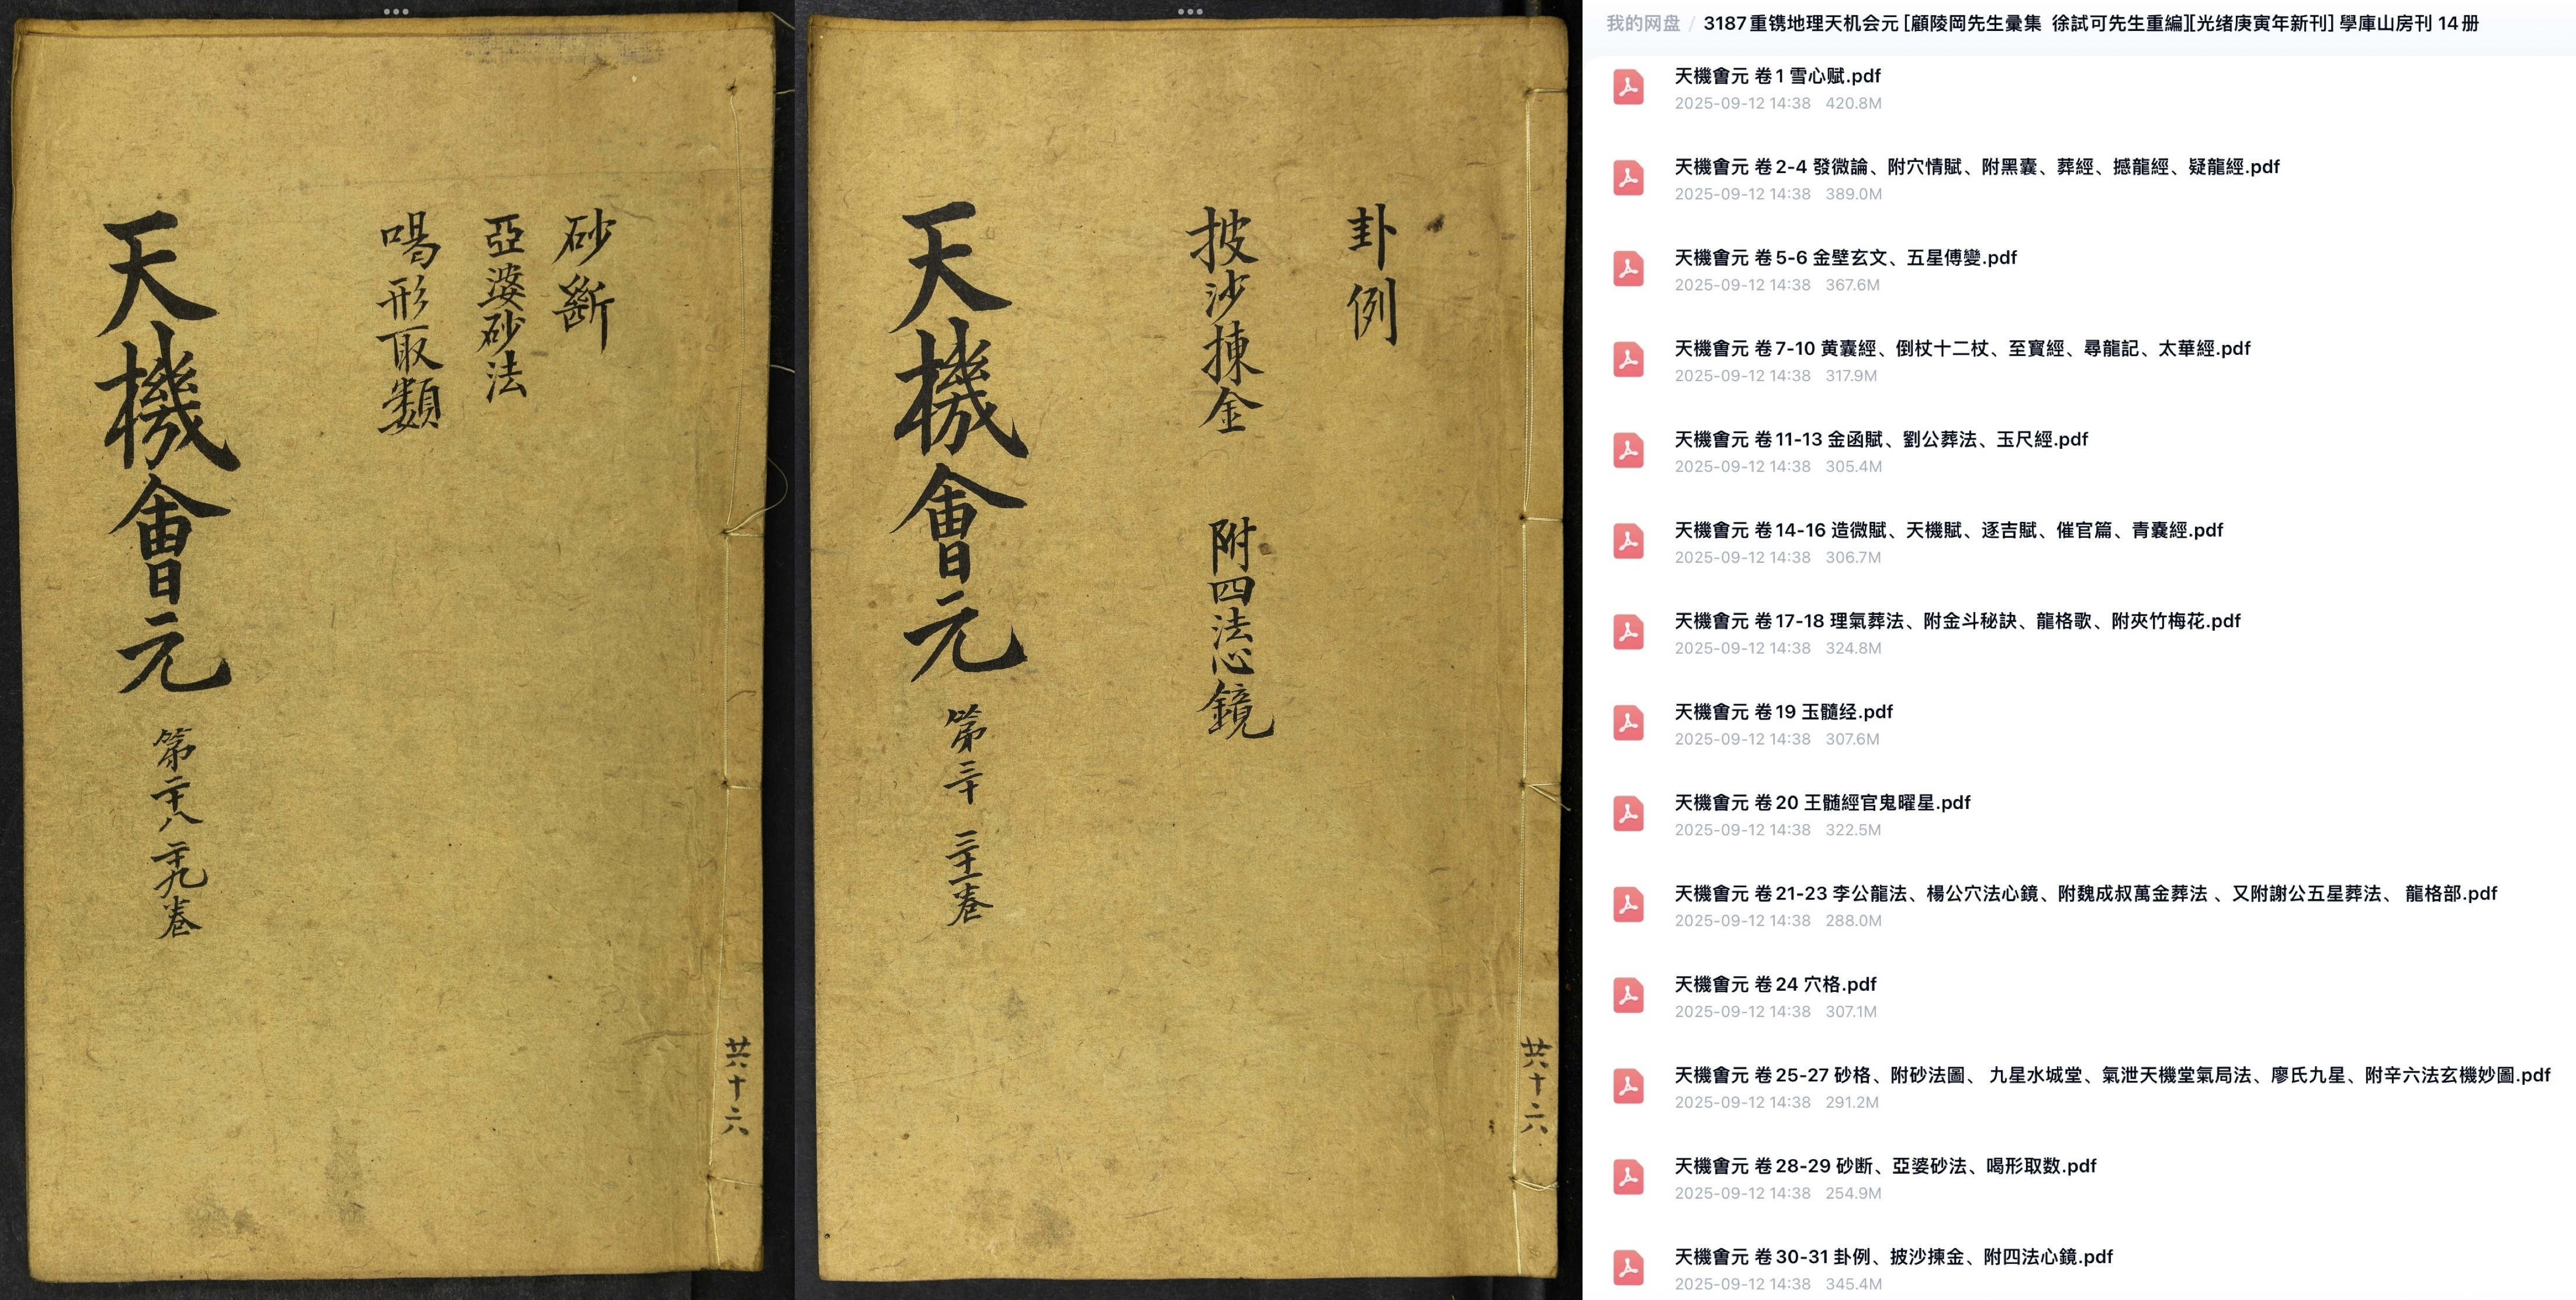 砂斷
亞婆砂法
喝形取類
天機會元
第二十八 二十九卷
共十六
卦例
披沙揀金 附四法心鏡
天機會元
第三十 三十一卷
共十六
我的网盘 / 3187重镌地理天机会元 [顧陵岡先生彙集 徐試可先生重編][光绪庚寅年新刊] 學庫山房刊 14册
天機會元 卷1 雪心赋.pdf
2025-09-12 14:38 420.8M
天機會元 卷2-4 發微論、附穴情賦、附黑囊、葬經、撼龍經、疑龍經.pdf
2025-09-12 14:38 389.0M
天機會元 卷5-6 金壁玄文、五星傅變.pdf
2025-09-12 14:38 367.6M
天機會元 卷7-10 黄囊經、倒杖十二杖、至寳經、尋龍記、太華經.pdf
2025-09-12 14:38 317.9M
天機會元 卷11-13 金函賦、劉公葬法、玉尺經.pdf
2025-09-12 14:38 305.4M
天機會元 卷14-16 造微賦、天機賦、逐吉賦、催官篇、青囊經.pdf
2025-09-12 14:38 306.7M
天機會元 卷17-18 理氣葬法、附金斗秘訣、龍格歌、附夾竹梅花.pdf
2025-09-12 14:38 324.8M
天機會元 卷19 玉髓经.pdf
2025-09-12 14:38 307.6M
天機會元 卷20 王髄經官鬼曜星.pdf
2025-09-12 14:38 322.5M
天機會元 卷21-23 李公龍法、楊公穴法心鏡、附魏成叔萬金葬法 、又附謝公五星葬法、 龍格部.pdf
2025-09-12 14:38 288.0M
天機會元 卷24 穴格.pdf
2025-09-12 14:38 307.1M
天機會元 卷25-27 砂格、附砂法圖、 九星水城堂、氣泄天機堂氣局法、廖氏九星、附辛六法玄機妙圖.pdf
2025-09-12 14:38 291.2M
天機會元 卷28-29 砂断、亞婆砂法、喝形取数.pdf
2025-09-12 14:38 254.9M
天機會元 卷30-31 卦例、披沙揀金、附四法心鏡.pdf
2025-09-12 14:38 345.4M